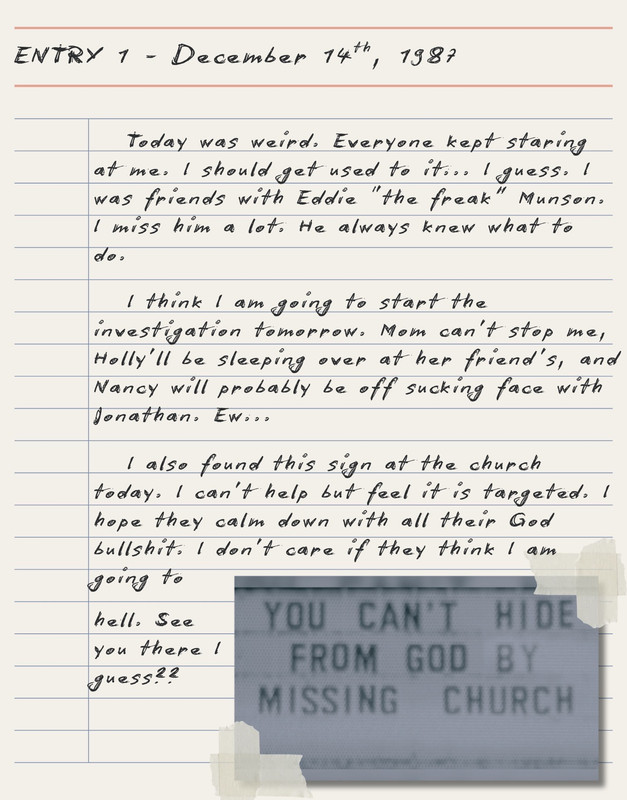 ENTRY 1 - December 14th, 1987
Today was weird. Everyone kept staring
at me. I should get used to it... I guess. I
was friends with Eddie "the freak" Munson.
I miss him a lot. He always knew what to
do.
I think I am going to start the
investigation tomorrow. Mom can't stop me,
Holly'll be sleeping over at her friend's, and
Nancy will probably be off sucking face with
Jonathan. Ew...
I also found this sign at the church
today. I can't help but feel it is targeted. I
hope they calm down with all their God
bullshit. I don't care if they think I am
going to
hell. See
you there I
guess??
YOU CAN'T HIDE
FROM GOD BY
MISSING CHURCH